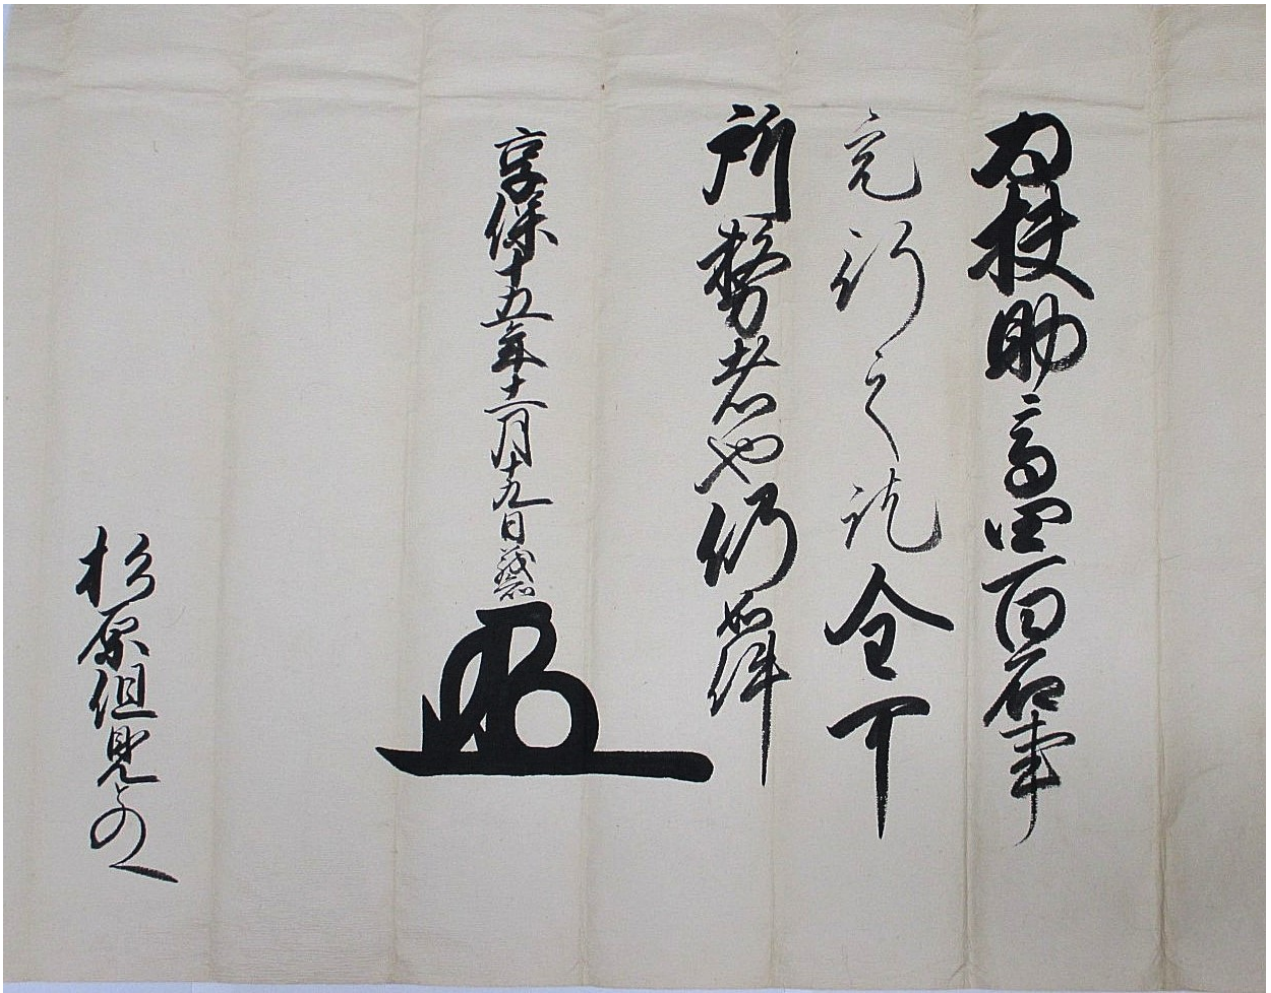 為扶助高四百石事
充行之訖全可
所務者也仍如件
享保十五年十一月十九日
杉原但見とのへ